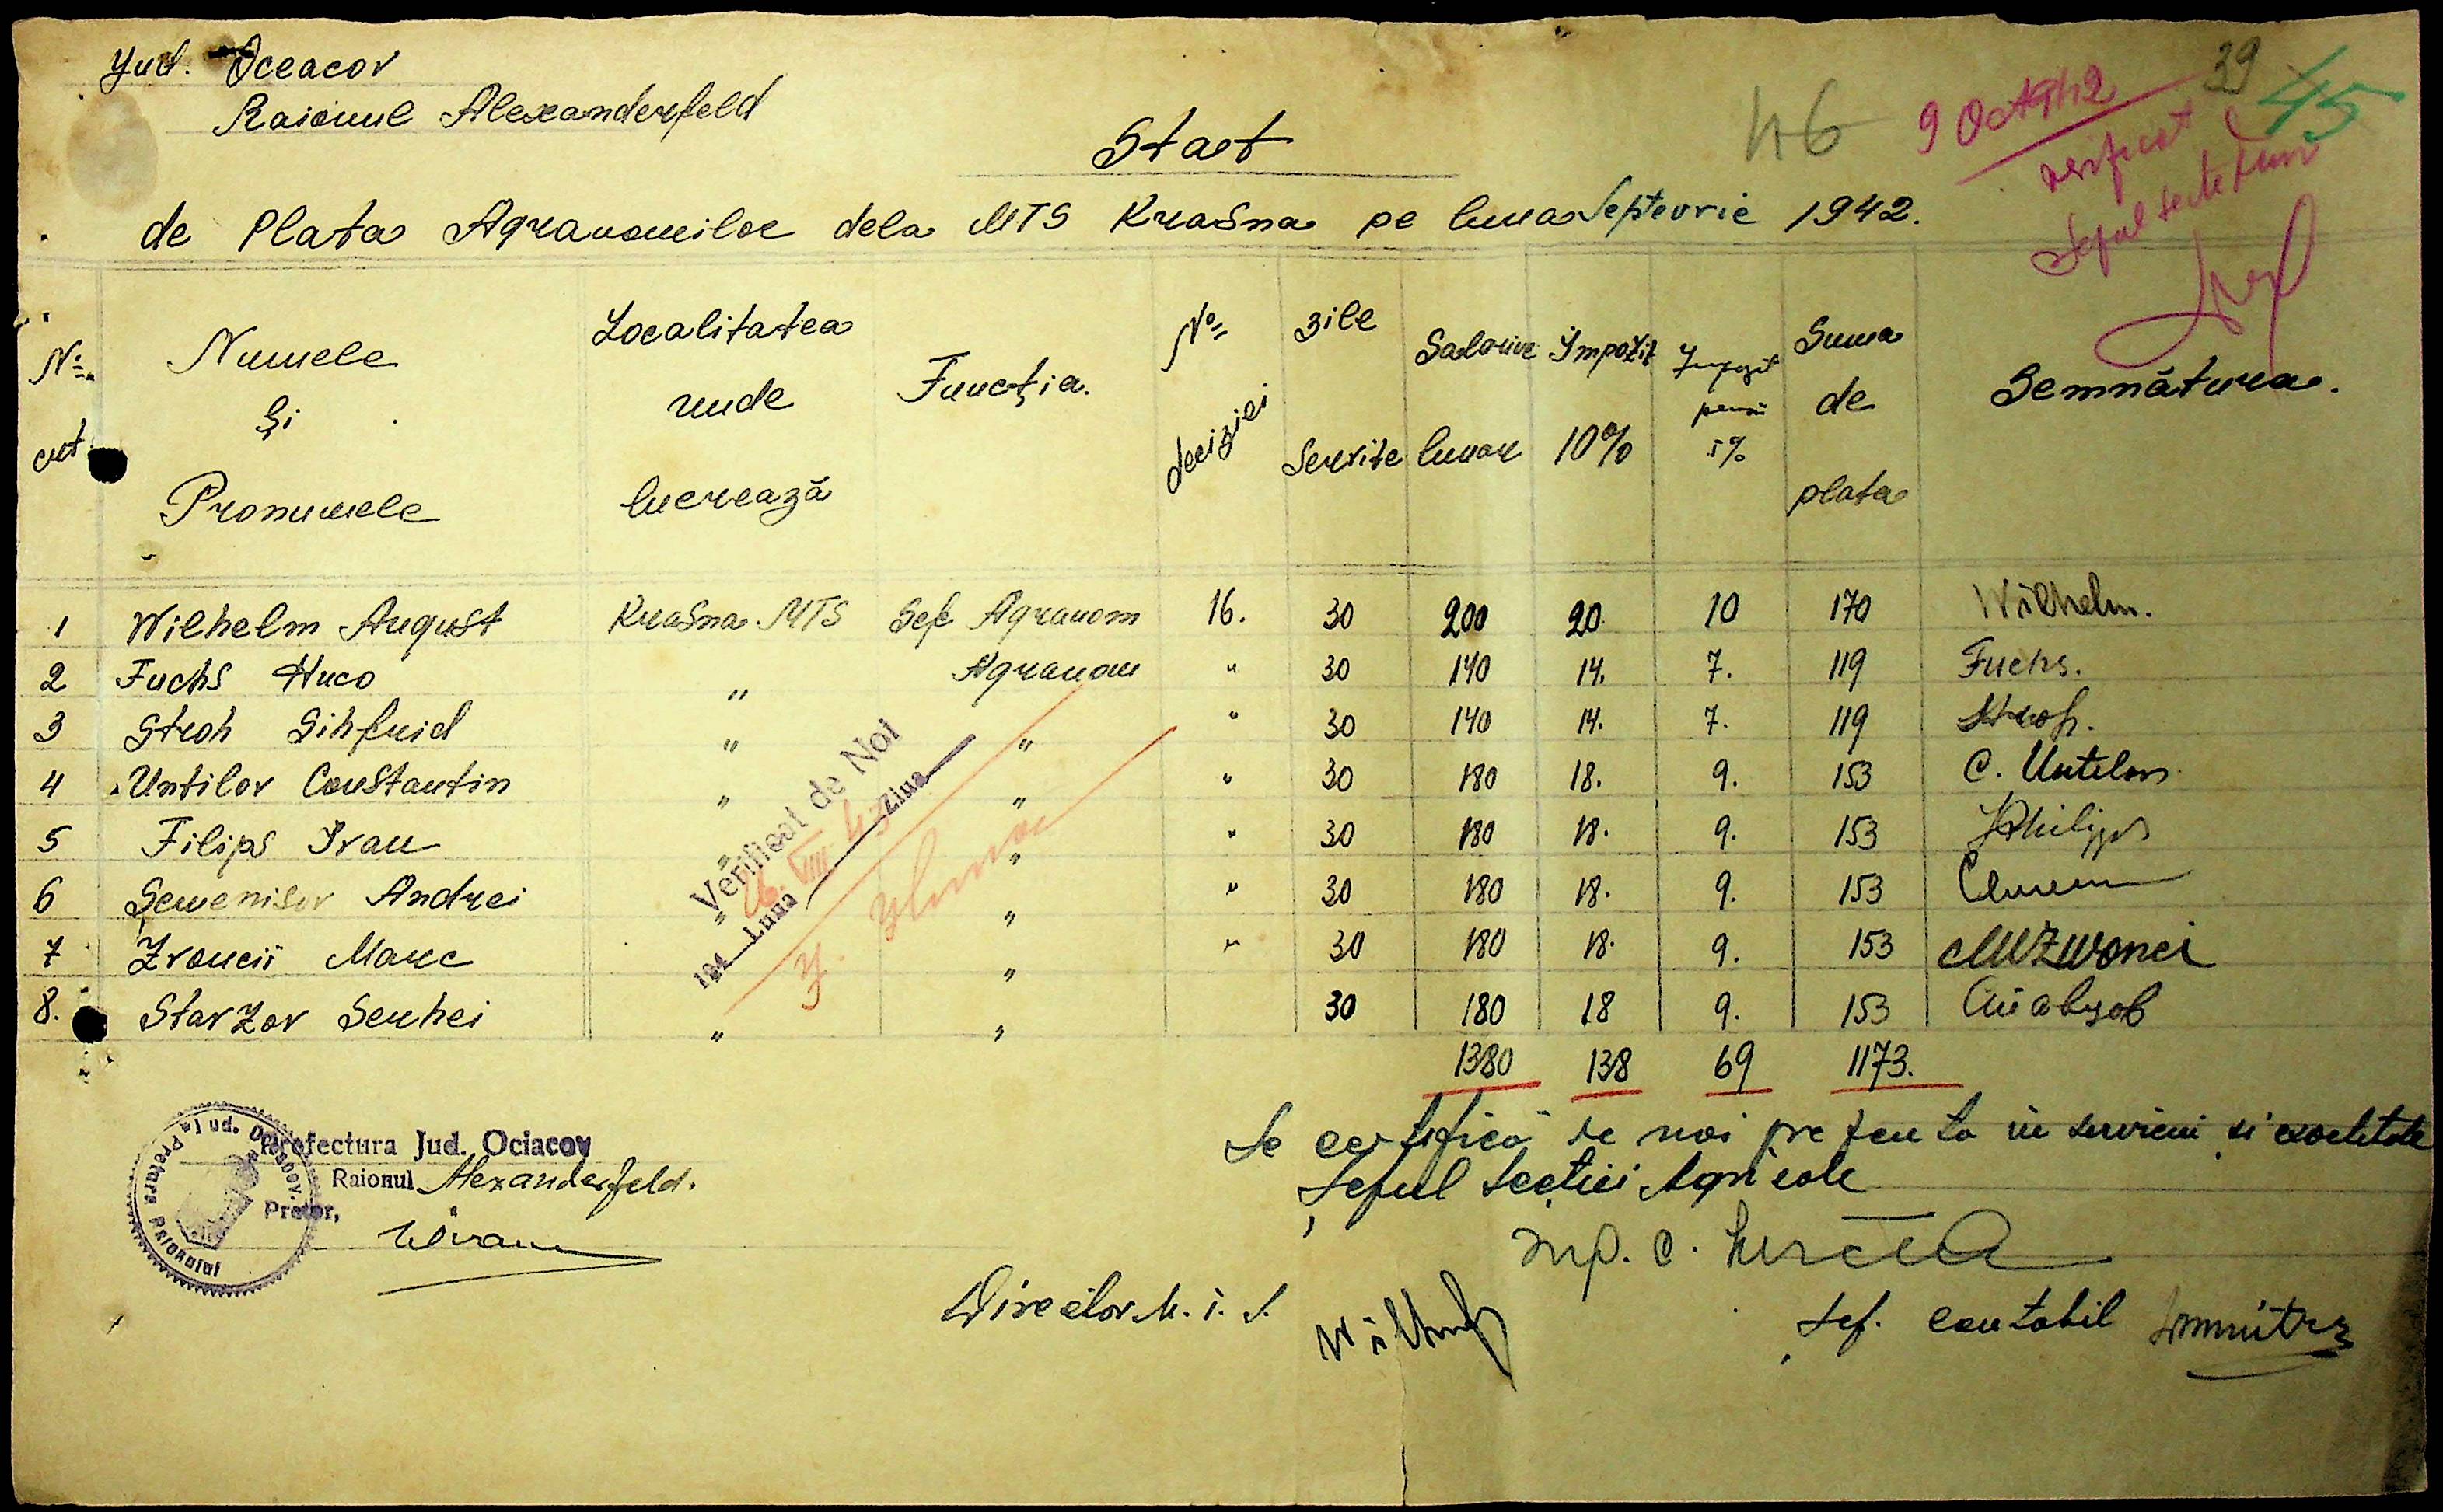 Jud. Oceacov
39
Raionul Alexanderfeld
46
9 Oct 942
45
Stat
verificat
de Plata Agranomilor dela MTS Krasna pe luna Septevrie 1942.
Șeful secției
No crt. Numele și Pronumele Localitatea unde lucrează Funcția. No deciziei zile servite Salariu lunar Impozit 10% Impozit pensii 5% Suma de plata Semnătura.
1 Wilhelm August Krasna MTS Șef Agranom 16. 30 200 20 10 170 Wilhelm.
2 Fuchs Huco " Agranom " 30 140 14. 7. 119 Fuchs.
3 Stroh Sihfrid " " " 30 140 14. 7. 119 Stroh.
4 Untilov Constantin " " " 30 180 18. 9. 153 C. Untilov
5 Filips Ivan " " " 30 180 18. 9. 153 Philipps
6 Andrei " " " 30 180 18. 9. 153
7 Zvoncii Marc " " 30 180 18. 9. 153 M Zwonci
8. Starzov Serhei " " 30 180 18 9. 153
1380 138 69 1173.
Verificat de Noi
194 Luna Ziua
Se certifică de noi prezenta in serviciu si exactitate
Șeful Secției Agricole
Prefectura Jud. Ociacov
Raionul Alexanderfeld.
Pretor,
Pretura Raionului
Jud. Oceacov
Director M.T.S.
Șef. contabil